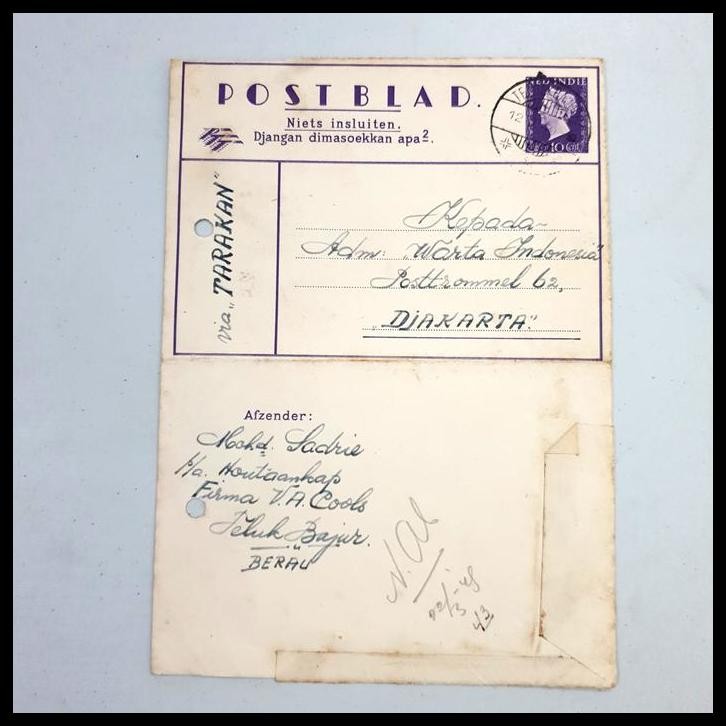 POSTBLAD.
NED INDIE
Niets insluiten.
Djangan dimasoekkan apa².
PTT
10 cent
via "TARAKAN"
Kepada
Adm: "Warta Indonesia"
Posttrommel 62,
"DJAKARTA."
Afzender:
Mohd. Sadrie
p/a. Houtaankap
Firma V.A. Cools
Teluk Bajur.
BERAU